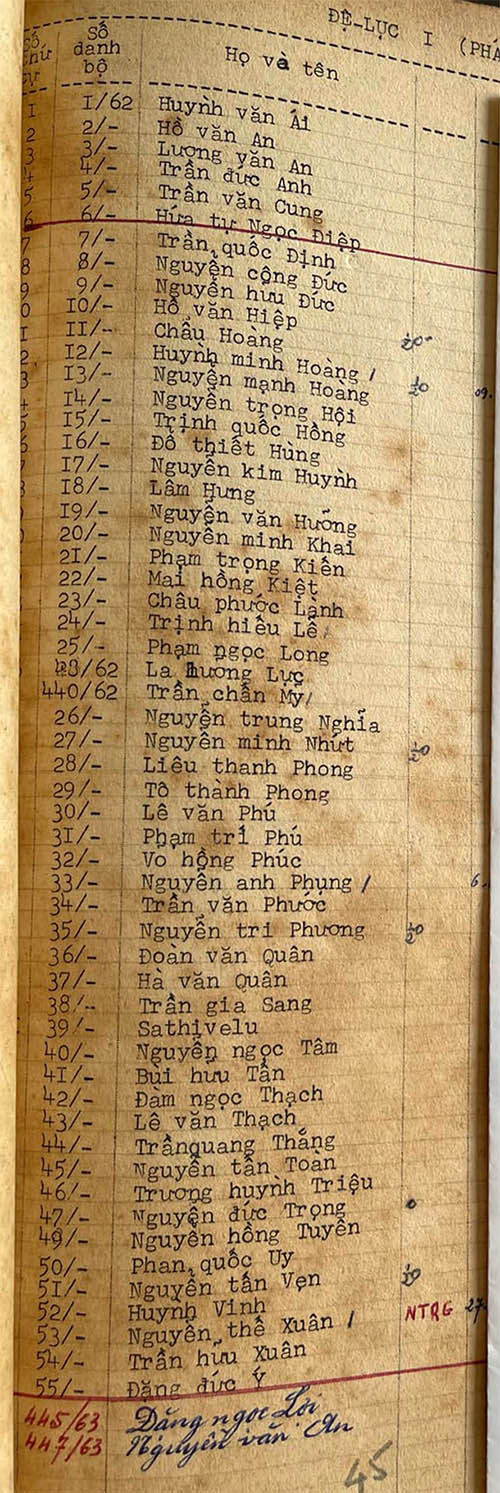 ĐỆ-LỤC I (PHÁ
Số thứ tự Số danh bộ Họ và tên
1 I/62 Huỳnh văn Ái
2 2/- Hồ văn An
3 3/- Lương văn An
4 4/- Trần đức Anh
5 5/- Trần văn Cung
6 6/- Hứa tự Ngọc Điệp
7 7/- Trần quốc Định
8 8/- Nguyễn công Đức
9 9/- Nguyễn hữu Đức
0 I0/- Hồ văn Hiệp
1 II/- Châu Hoàng
2 I2/- Huỳnh minh Hoàng /
3 I3/- Nguyễn mạnh Hoàng
4 I4/- Nguyễn trọng Hội
5 I5/- Trịnh quốc Hồng
6 I6/- Đỗ thiết Hùng
7 I7/- Nguyễn kim Huynh
8 I8/- Lâm Hưng
9 I9/- Nguyễn văn Hưỡng
20/- Nguyễn minh Khai
2I/- Phạm trọng Kiến
22/- Mai hồng Kiệt
23/- Châu phước Lành
24/- Trịnh hiếu Lễ /
25/- Phạm ngọc Long
/62 La hương Lực
440/62 Trần chấn Mỹ /
26/- Nguyễn trung Nghĩa
27/- Nguyễn minh Nhứt
28/- Liêu thanh Phong
29/- Tô thành Phong
30/- Lê văn Phú
3I/- Phạm trí Phú
32/- Vo hồng Phúc
33/- Nguyễn anh Phụng /
34/- Trần văn Phước
35/- Nguyễn tri Phương
36/- Đoàn văn Quân
37/- Hà văn Quân
38/- Trần gia Sang
39/- Sathivelu
40/- Nguyễn ngọc Tâm
4I/- Bùi hữu Tấn
42/- Đàm ngọc Thạch
43/- Lê văn Thạch
44/- Trầnquang Thắng
45/- Nguyễn tấn Toàn
46/- Trương huỳnh Triệu
47/- Nguyễn đức Trọng
49/- Nguyễn hồng Tuyến
50/- Phan quốc Uy
5I/- Nguyễn tấn Vẹn
52/- Huỳnh Vinh NTQG 27-
53/- Nguyễn thế Xuân /
54/- Trần hữu Xuân
55/- Đặng đức Ý
445/63 Đặng ngọc Lời
447/63 Nguyễn văn An
45